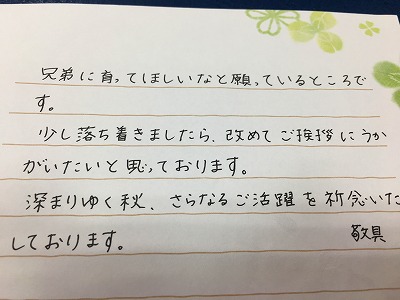 兄弟に育ってほしいなと願っているところで
す。
少し落ち着きましたら、改めてご挨拶にうか
がいたいと思っております。
深まりゆく秋、さらなるご活躍を祈念いた
しております。
敬具